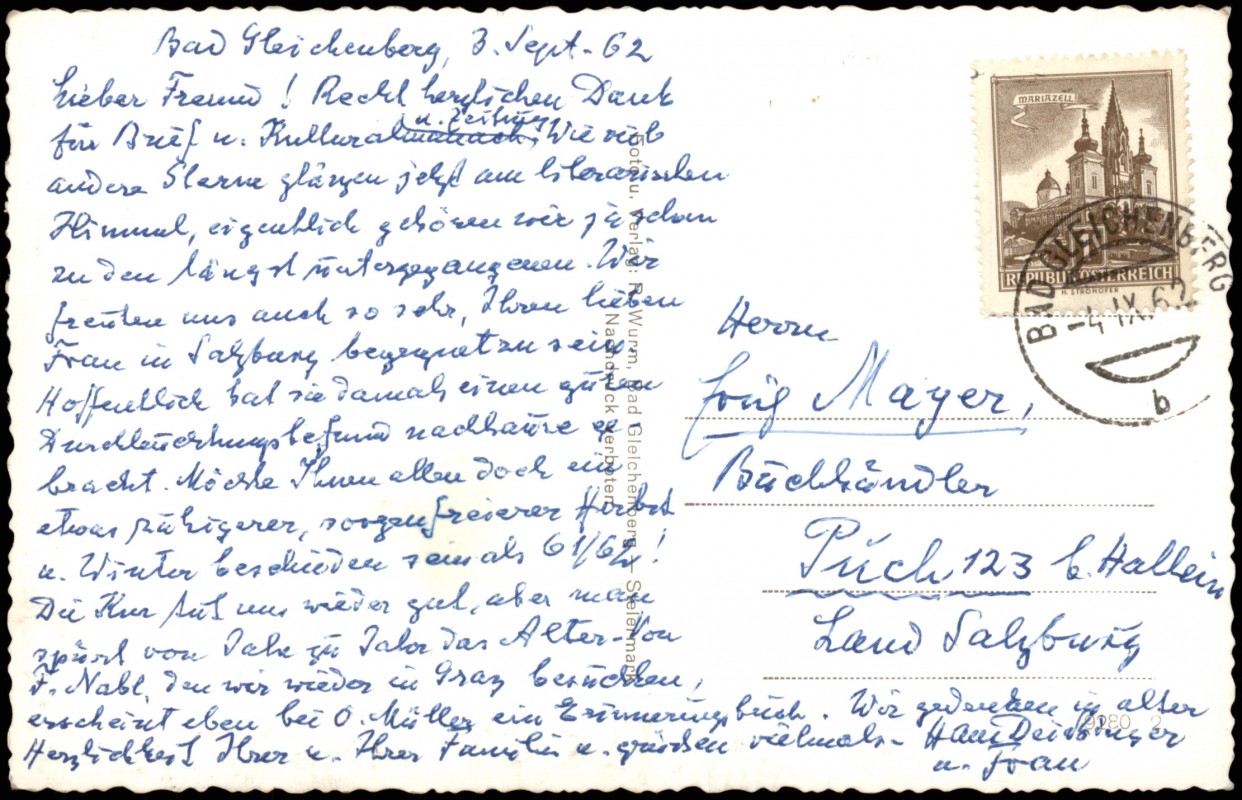 Bad Gleichenberg, 3. Sept. 62
Lieber Freund! Recht herzlichen Dank
für Brief u. Kulturalmanach, u. Zeitung. Wie viele
andere Sterne glänzen jetzt am literarischen
Himmel, eigentlich gehören wir ja schon
zu den längst untergegangenen. Wir
freuten uns auch so sehr, Ihren lieben
Frau in Salzburg begegnet zu sein.
Hoffentlich hat sie damals einen guten
Durchleuchtungsbefund nachhause ge-
bracht. Möchte Ihnen allen doch ein
etwas ruhigerer, sorgenfreierer Herbst
u. Winter beschieden sein als 61/62!
Die Kur tut uns wieder gut, aber man
spürt von Jahr zu Jahr das Alter. Von
F. Nabl, den wir wieder in Graz besuchten,
erscheint eben bei O. Müller ein Erinnerungsbuch. Wir gedenken in alter
Herzlichkeit Ihrer u. Ihrer Familie u. grüssen vielmals. Hans Deissinger
u. Frau
Foto u. Verlag: R. Wurm, Bad Gleichenberg — Steiermark
Nachdruck verboten
MARIAZELL
REPUBLIK ÖSTERREICH
H. STROHOFER
BAD GLEICHENBERG
-4.IX.62
b
Herrn
Mayer,
Buchhändler
Puch 123 b. Hallein
Land Salzburg
9280 2